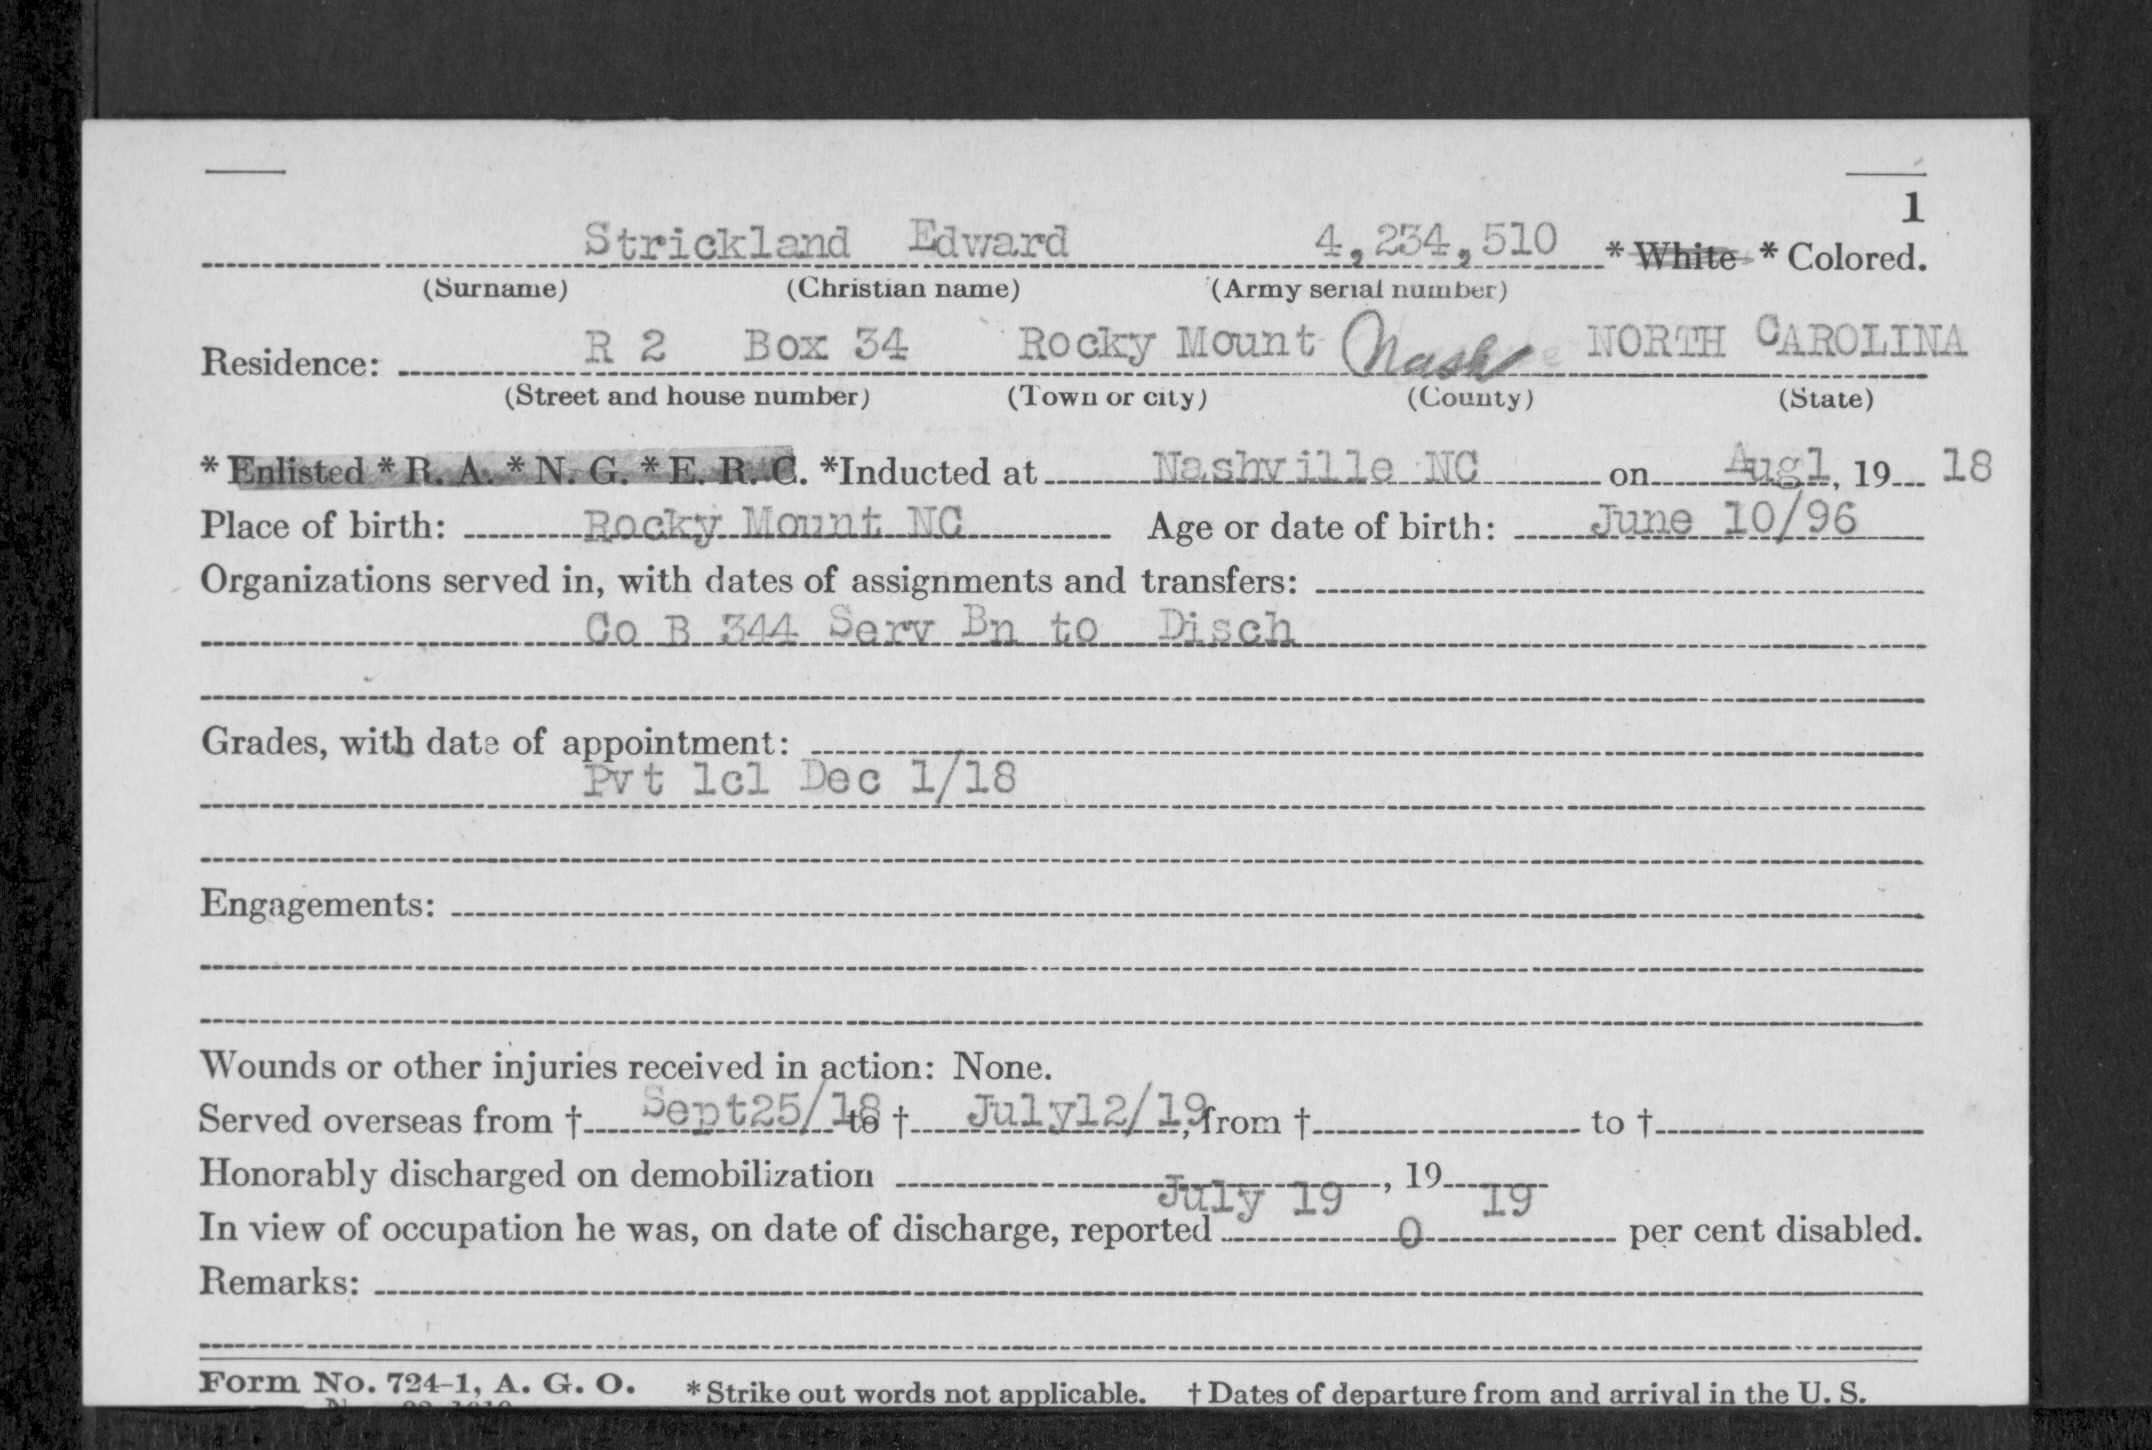 1
Strickland Edward 4,234,510 * White * Colored.
(Surname) (Christian name) (Army serial number)
Residence: R 2 Box 34 Rocky Mount Nash NORTH CAROLINA
(Street and house number) (Town or city) (County) (State)
* Enlisted * R. A. * N. G. * E. R. C. *Inducted at Nashville NC on Aug1, 19 18
Place of birth: Rocky Mount NC Age or date of birth: June 10/96
Organizations served in, with dates of assignments and transfers:
Co B 344 Serv Bn to Disch
Grades, with date of appointment:
Pvt 1cl Dec 1/18
Engagements:
Wounds or other injuries received in action: None.
Served overseas from † Sept25/18 to † July12/19, from † to †
Honorably discharged on demobilization July 19, 19 19
In view of occupation he was, on date of discharge, reported 0 per cent disabled.
Remarks:
Form No. 724-1, A. G. O. * Strike out words not applicable. † Dates of departure from and arrival in the U. S.